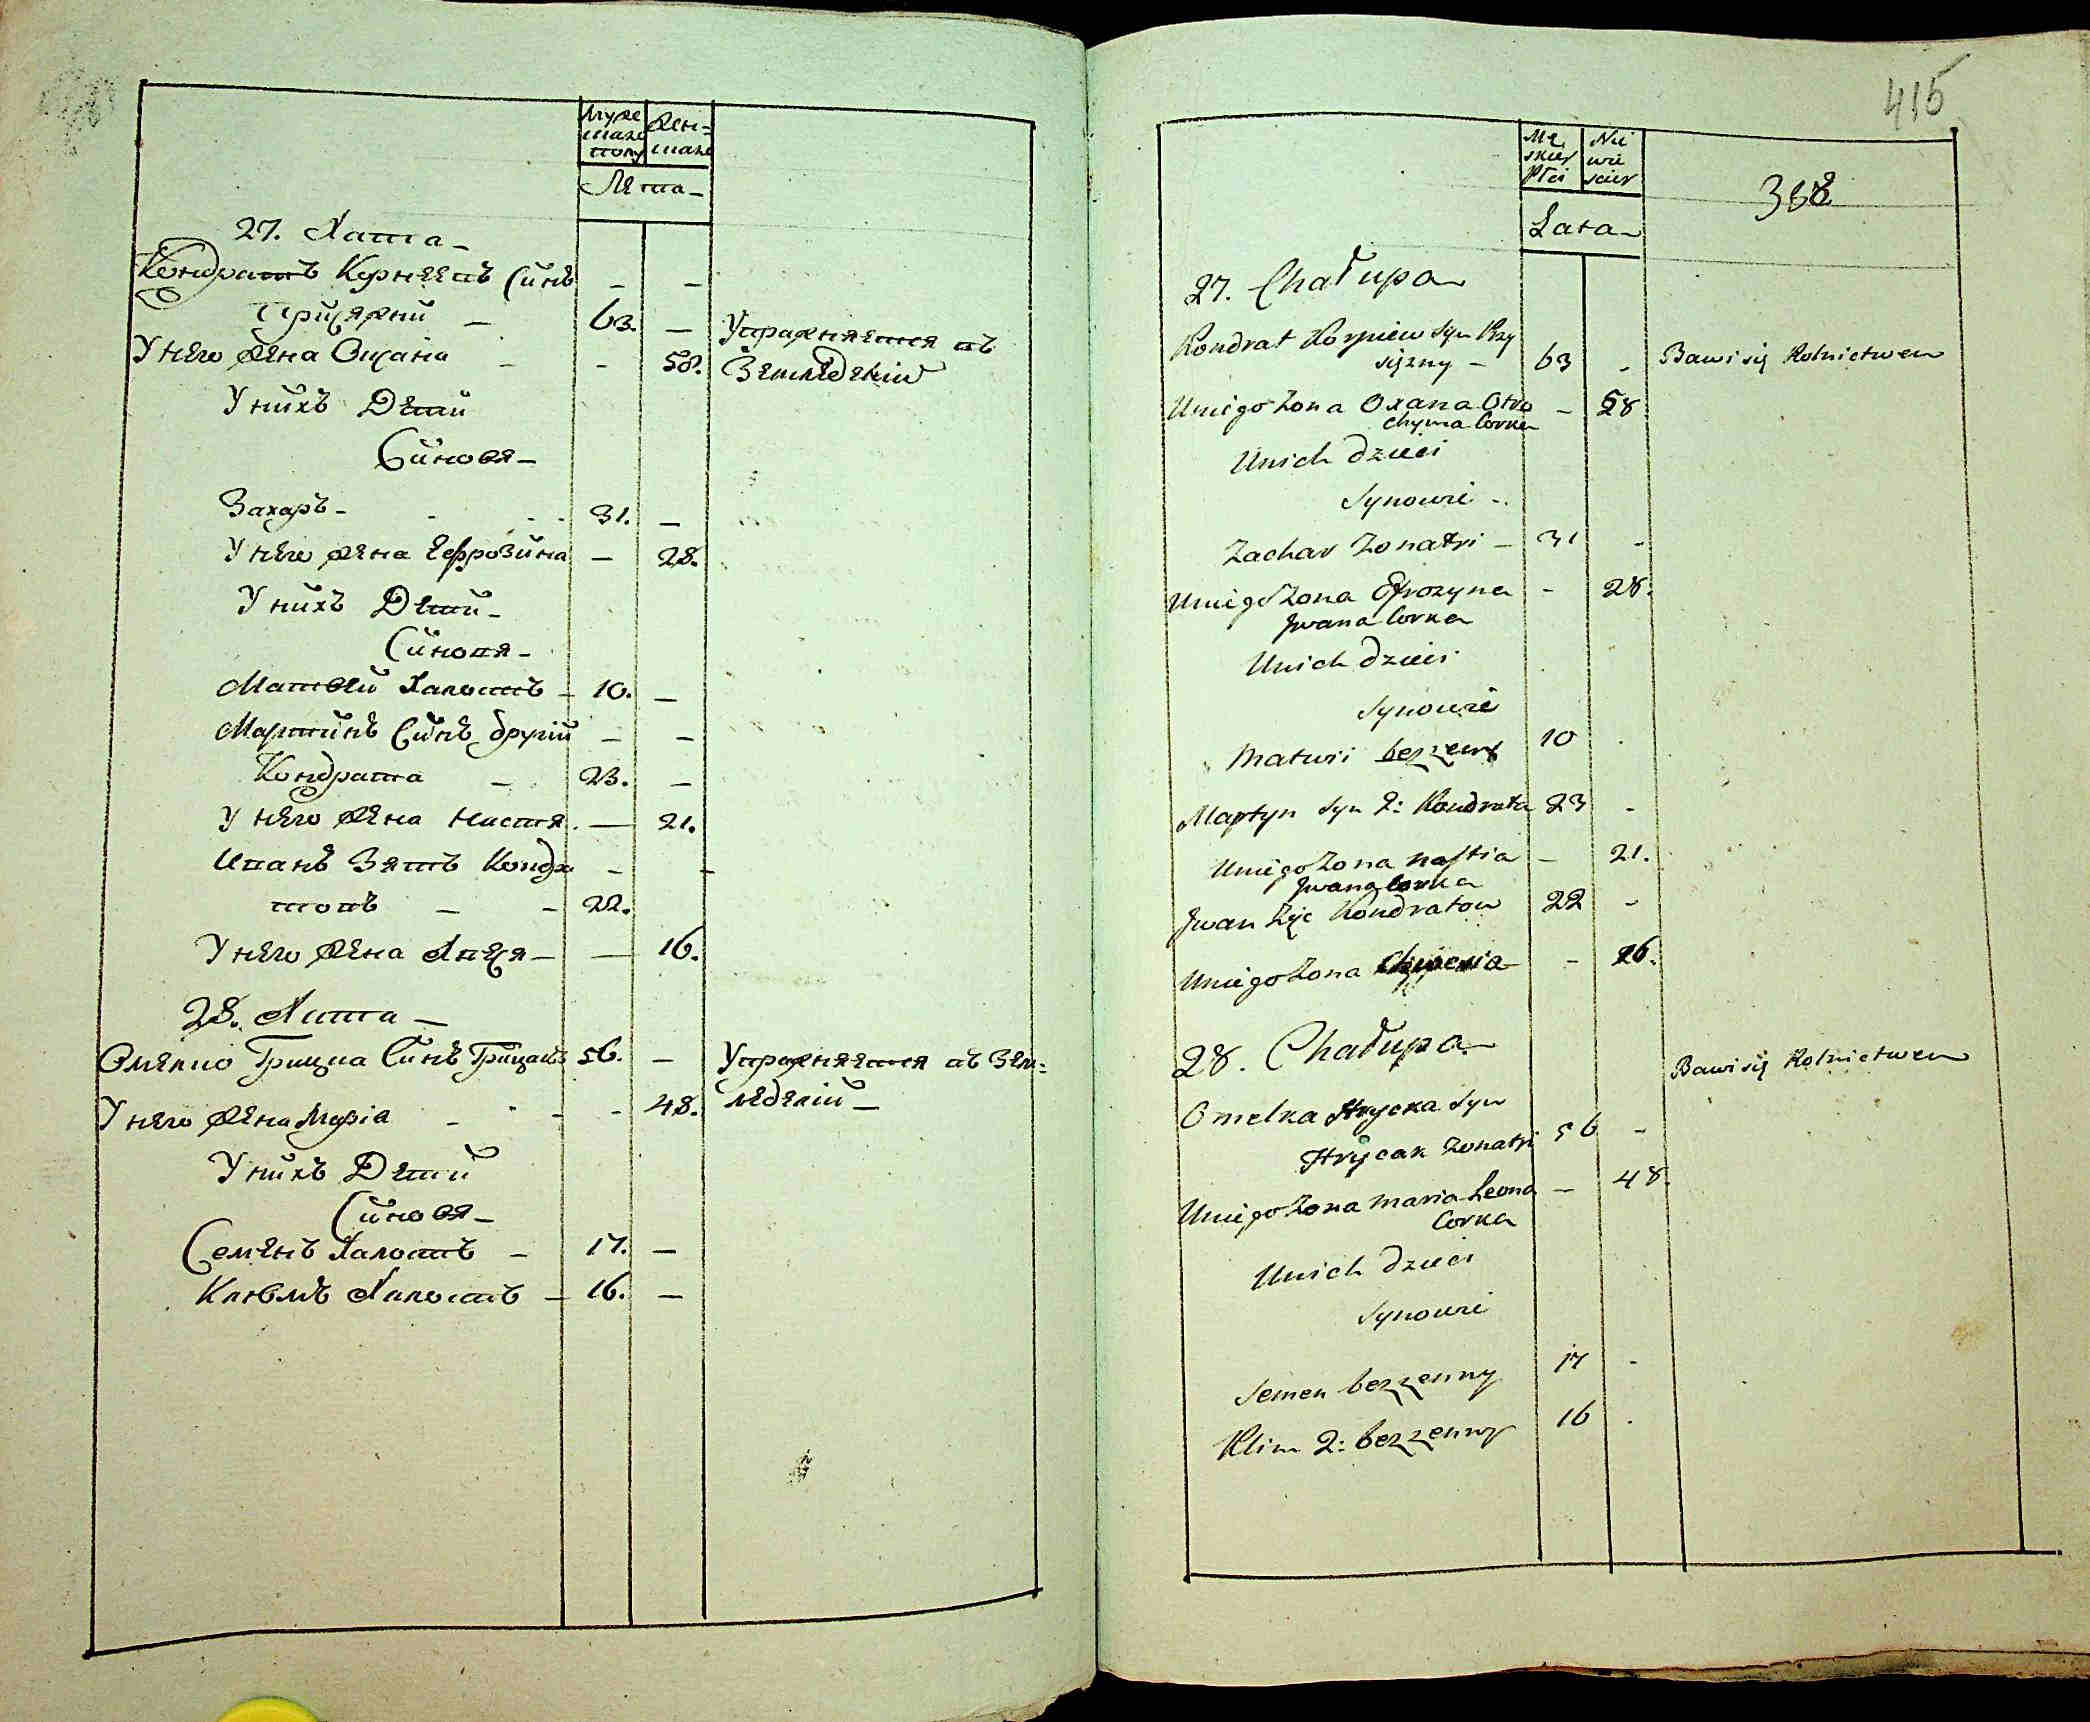 Муже
ска
полу
Жен=
ска
Лета
27. Хата
Кондратъ Корнѣевъ Синъ
Присяжни 63.
У него жена Оксана 58.
Упражняется въ
Земледелии
У нихъ Дети
Синовя
Захаръ 31.
У него жена Ефрозина 28.
У нихъ Дети
Синовя
Матвѣй Халостъ 10.
Мартинъ Синъ другий
Кондрата 23.
У него жена Настя 21.
Иванъ Зять Кондра
товъ 22.
У него жена 16.
28. Хата
Омелко Грицка Синъ Грицакъ 56.
Упражняется въ Зем=
леделии
У него жена Мария 48.
У нихъ Дети
Синовя
Семенъ Халостъ 17.
Климъ Халостъ 16.
415
Mę
skiey
Płci
Nie
wie
sciey
Lata
368
27. Chałupa
Kondrat Korpiew Syn Przy
siężny 63
Bawi się Rolnictwem
U niego Żona Oxana Otro
chyma Corka 58
U nich dzieci
Synowie
Zachar Żonaty 31
U niego Żona Efrozyna 28.
Jwana Corka
U nich dzieci
Synowie
Matwii bezżenny 10
Martyn Syn 2: Kondrata 23
U niego Żona Nastia 21.
Jwana Corka
Jwan Zięć Kondratow 22
U niego Żona 16.
28. Chałupa
Bawi się Rolnictwem
Omelka Hrycka Syn
Hrycak Żonaty 56
U niego Żona Maria Leona 48.
Corka
U nich dzieci
Synowie
Semen bezżenny 17
Klim 2: bezżenny 16